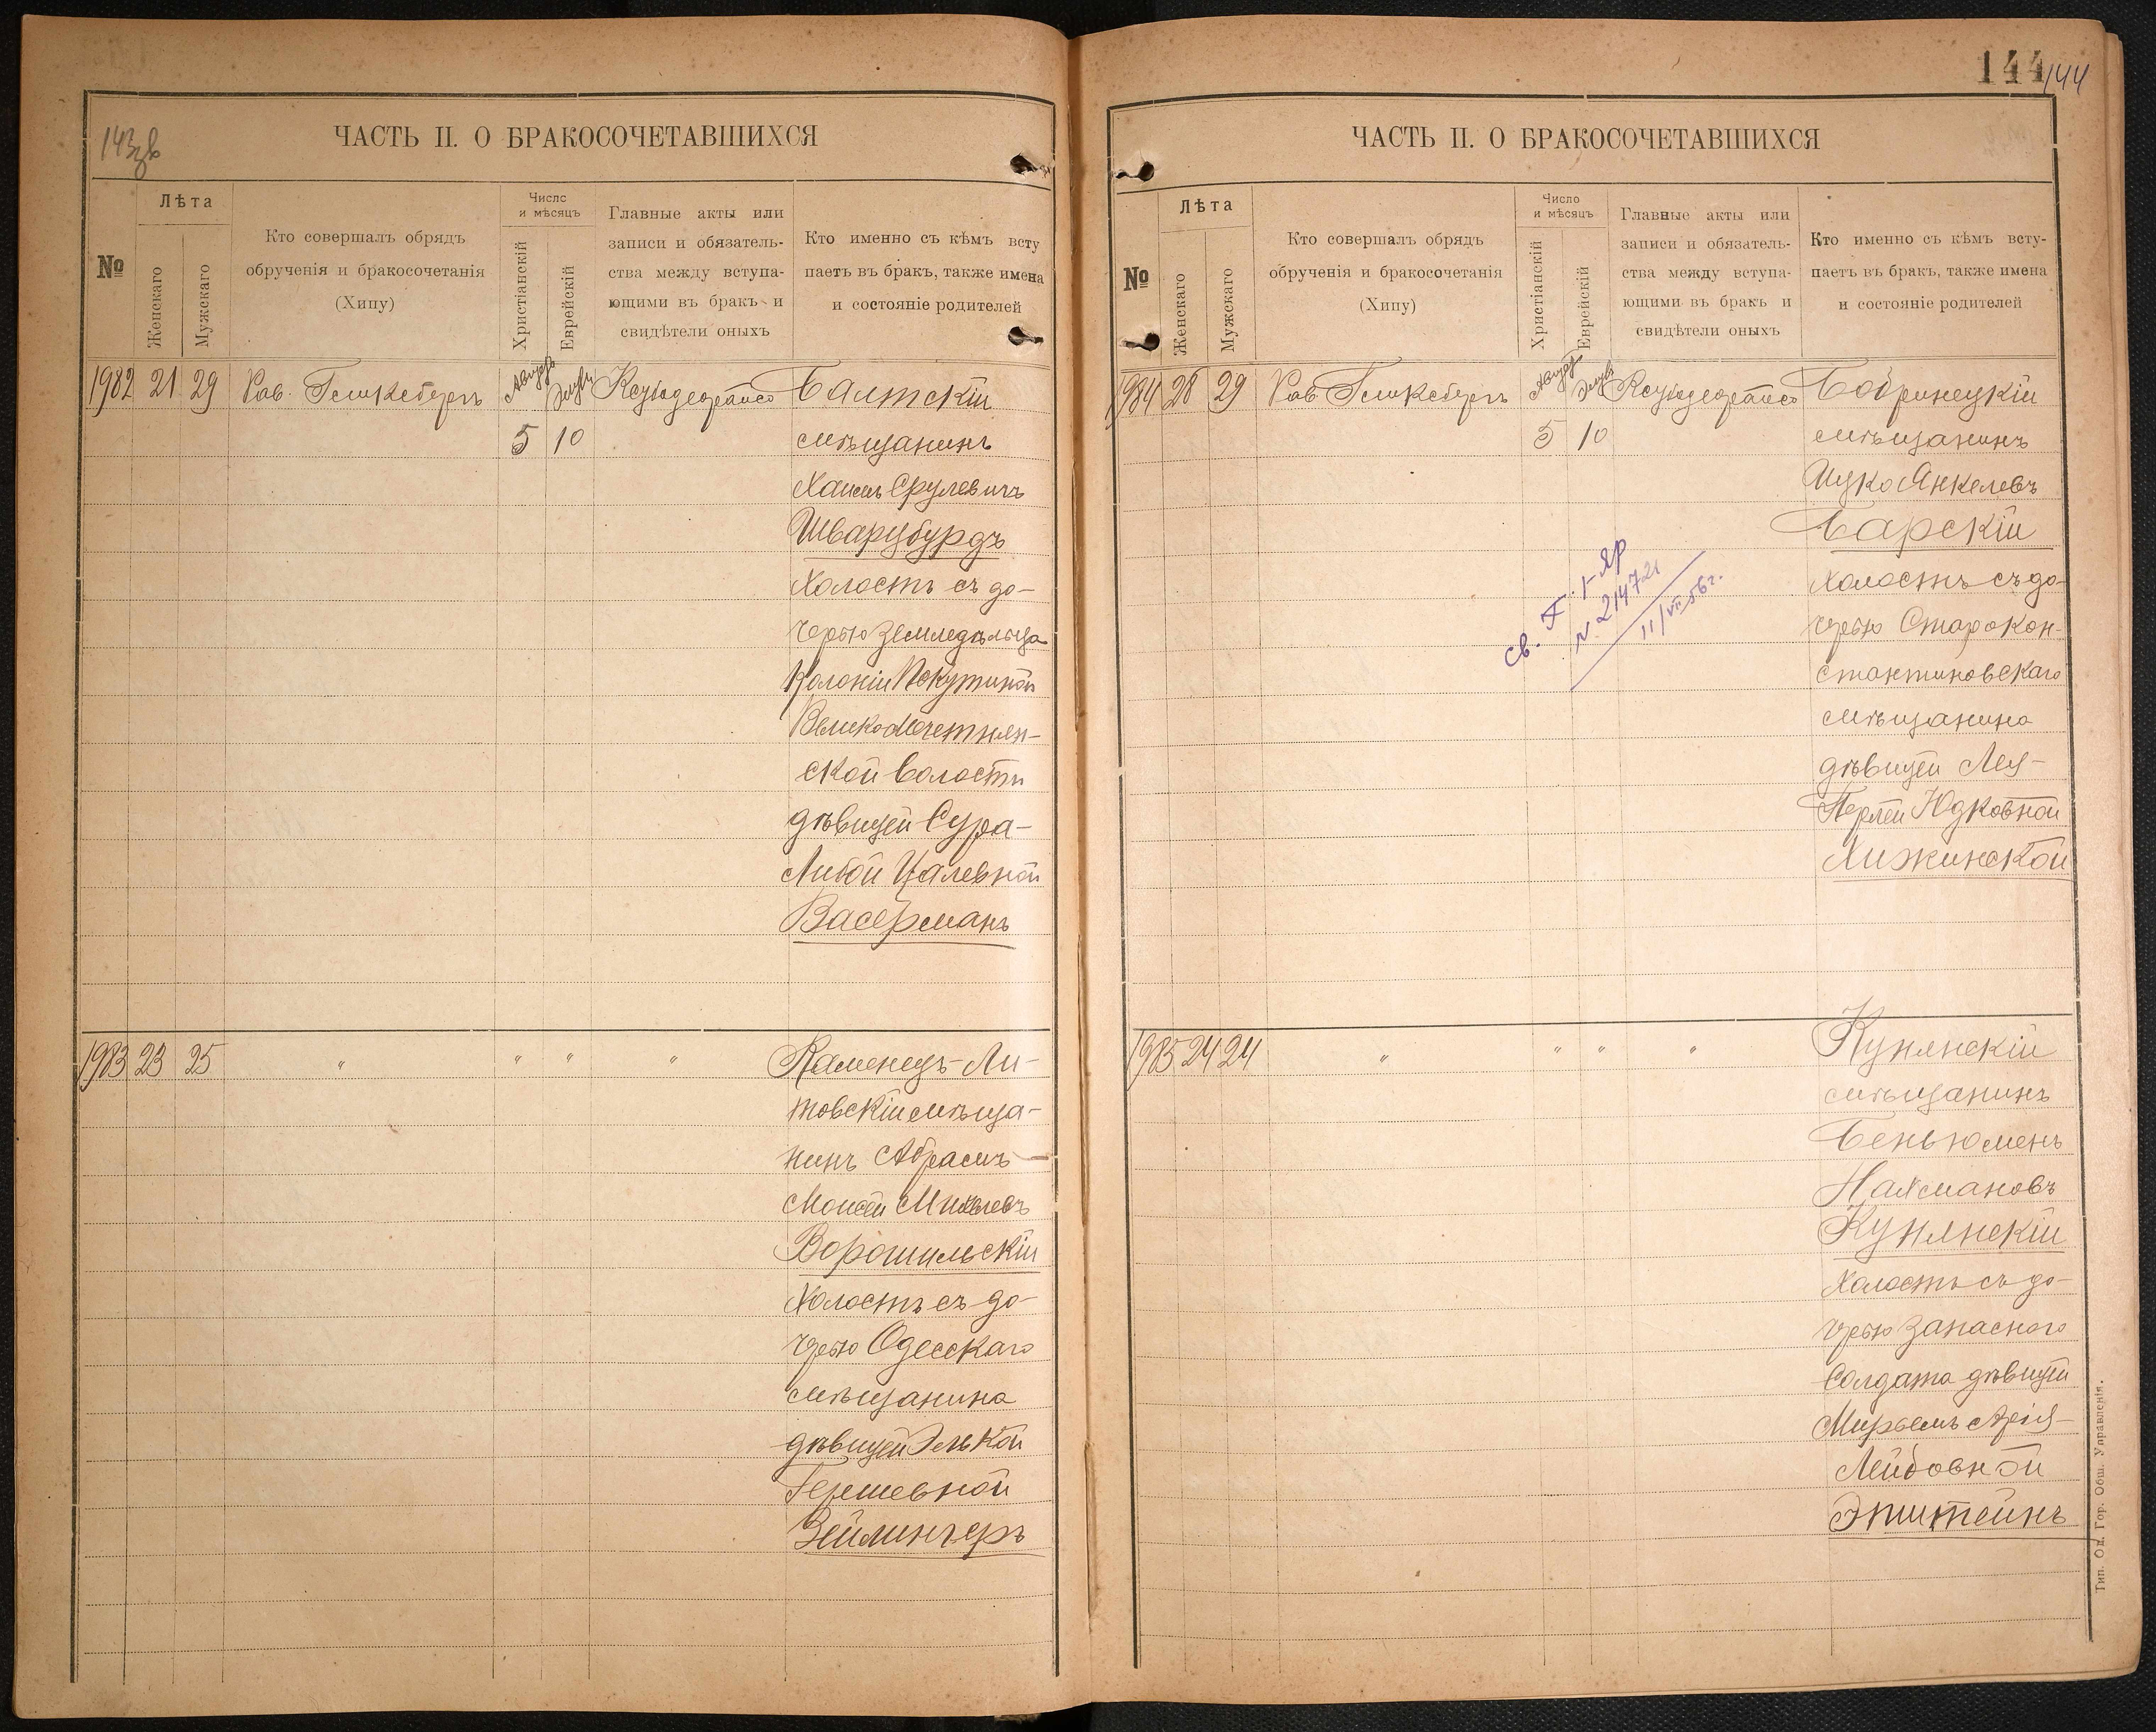 143зв
ЧАСТЬ II. О БРАКОСОЧЕТАВШИХСЯ
№
Лѣта
Женскаго
Мужскаго
Кто совершалъ обрядъ
обрученія и бракосочетанія
(Хипу)
Число
и мѣсяцъ
Христіанскій
Еврейскій
Главные акты или
записи и обязатель-
ства между вступа-
ющими въ бракъ и
свидѣтели оныхъ
Кто именно съ кѣмъ всту
паетъ въ бракъ, также имена
и состояніе родителей
1982 21 29 Рав. Августъ Балтскій
5 10 мѣщанинъ
Хаимъ Срулевичъ
Шварцбурдъ
Холостъ съ до-
черью земледѣльца
Колоніи
ской волости
дѣвицей Сура-
Либой Цалевной
Васерманъ
1983 23 25 " " " " Каменецъ-Ли-
товскій мѣща-
нинъ Абрамъ-
Моисей
Ворошильскій
Холостъ съ до-
черью Одесскаго
мѣщанина
дѣвицей Элькой
Гершевной
Зейлингеръ
144 144
ЧАСТЬ II. О БРАКОСОЧЕТАВШИХСЯ
№
Лѣта
Женскаго
Мужскаго
Кто совершалъ обрядъ
обрученія и бракосочетанія
(Хипу)
Число
и мѣсяцъ
Христіанскій
Еврейскій
Главные акты или
записи и обязатель-
ства между вступа-
ющими въ бракъ и
свидѣтели оныхъ
Кто именно съ кѣмъ всту-
паетъ въ бракъ, также имена
и состояніе родителей
1984 28 29 Рав Августъ Бобринецкій
5 10 мѣщанинъ
Ицко Янкелевъ
Барскій
Холостъ съ до-
черью Старокон-
стантиновскаго
мѣщанина
дѣвицей Лея-
Перлей Юдковной
Лижинской
св. I-ЯР
N. 214721
11/VII-56г.
1985 24 24 " " " " Купянскій
мѣщанинъ
Беньюменъ
Нахмановъ
Купянскій
Холостъ съ до-
черью запаснаго
Солдата дѣвицей
Мирьемъ Арія-
Лейбовной
Эпштейнъ
Тип. Од. Гор. Общ. Управленія.